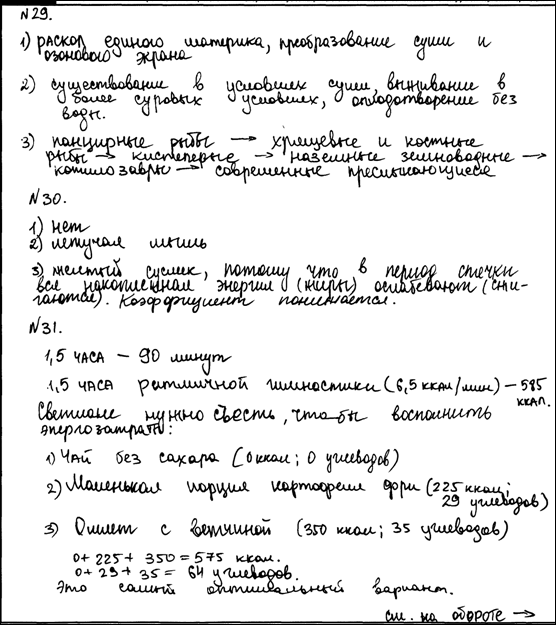 №29.
1) раскол единого материка, преобразование суши и
озонового экрана
2) существование в условиях суши, выживание в
более суровых условиях, оплодотворение без
воды.
3) панцирные рыбы → хрящевые и костные
рыбы → кистеперые → наземные земноводные →
котилозавры → современные пресмыкающиеся
№30.
1) нет
2) летучая мышь
3) желтый суслик, потому что в период спячки
вся накопленная энергия (жиры) ослабевают (сжи-
гаются). Коэффициент понижается.
№31.
1,5 часа – 90 минут
1,5 часа ритмичной гимнастики (6,5 ккал/мин) – 585
ккал.
Светлане нужно съесть, что бы восполнить
энергозатраты:
1) Чай без сахара (0 ккал; 0 углеводов)
2) Маленькая порция картофеля фри (225 ккал;
29 углеводов)
3) Омлет с ветчиной (350 ккал; 35 углеводов)
0 + 225 + 350 = 575 ккал.
0 + 29 + 35 = 64 углеводов.
Это самый оптимальный вариант.
см. на обороте →